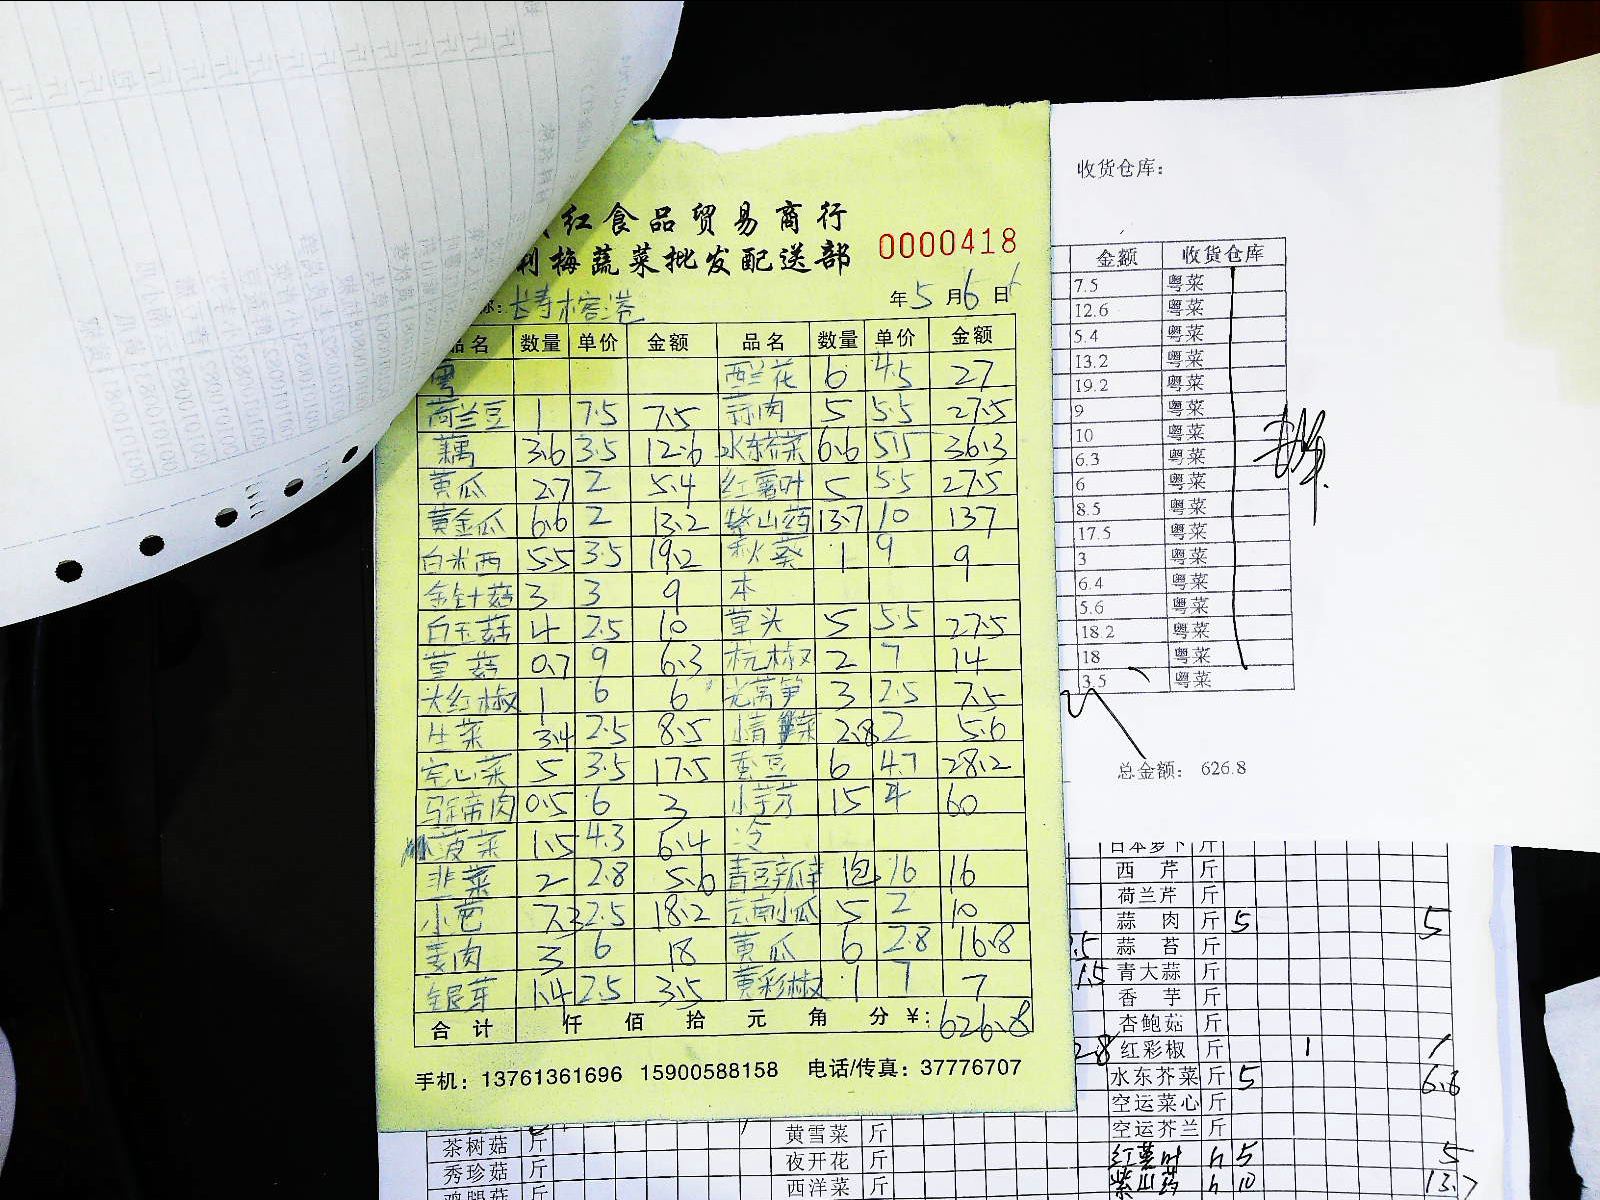 红食品贸易商行
利梅蔬菜批发配送部
0000418
长寿榕港
年5月6日
品名 数量 单价 金额 品名 数量 单价 金额
粤 西兰花 6 4.5 27
荷兰豆 1 7.5 7.5 蒜肉 5 5.5 27.5
藕 3.6 3.5 12.6 水东芥菜 6.6 5.5 36.3
黄瓜 2.7 2 5.4 红薯叶 5 5.5 27.5
黄金瓜 6.6 2 13.2 紫山药 13.7 10 137
白米西 5.5 3.5 19.2 秋葵 1 9 9
金针菇 3 3 9 本
白玉菇 4 2.5 10 草头 5 5.5 27.5
草菇 0.7 9 6.3 杭椒 2 7 14
大红椒 1 6 6 光莴笋 3 2.5 7.5
生菜 3.4 2.5 8.5 小青菜 2.8 2 5.6
空心菜 5 3.5 17.5 蚕豆 6 4.7 28.2
马蹄肉 0.5 6 3 小芋艿 15 4 60
菠菜 1.5 4.3 6.4 冷
韭菜 2 2.8 5.6 青豆瓣 1包 16 16
小芭 7.3 2.5 18.2 云南小瓜 5 2 10
姜肉 3 6 18 黄瓜 6 2.8 16.8
银芽 1.4 2.5 3.5 黄彩椒 1 7 7
合计 仟 佰 拾 元 角 分 ¥: 626.8
手机：13761361696 15900588158 电话/传真：37776707
收货仓库：
金额 收货仓库
7.5 粤菜
12.6 粤菜
5.4 粤菜
13.2 粤菜
19.2 粤菜
9 粤菜
10 粤菜
6.3 粤菜
6 粤菜
8.5 粤菜
17.5 粤菜
3 粤菜
6.4 粤菜
5.6 粤菜
18.2 粤菜
18 粤菜
3.5 粤菜
总金额： 626.8
日本萝卜 斤
西芹 斤
荷兰芹 斤
蒜肉 斤 5 5
蒜苔 斤
1.5 青大蒜 斤
香芋 斤
杏鲍菇 斤
2.8 红彩椒 斤 1 1
水东芥菜 斤 5 6.6
空运菜心 斤
空运芥兰 斤
红薯叶 5 5
紫山药 10 13.7
茶树菇 斤 黄雪菜 斤
秀珍菇 斤 夜开花 斤
鸡腿菇 斤 西洋菜 斤